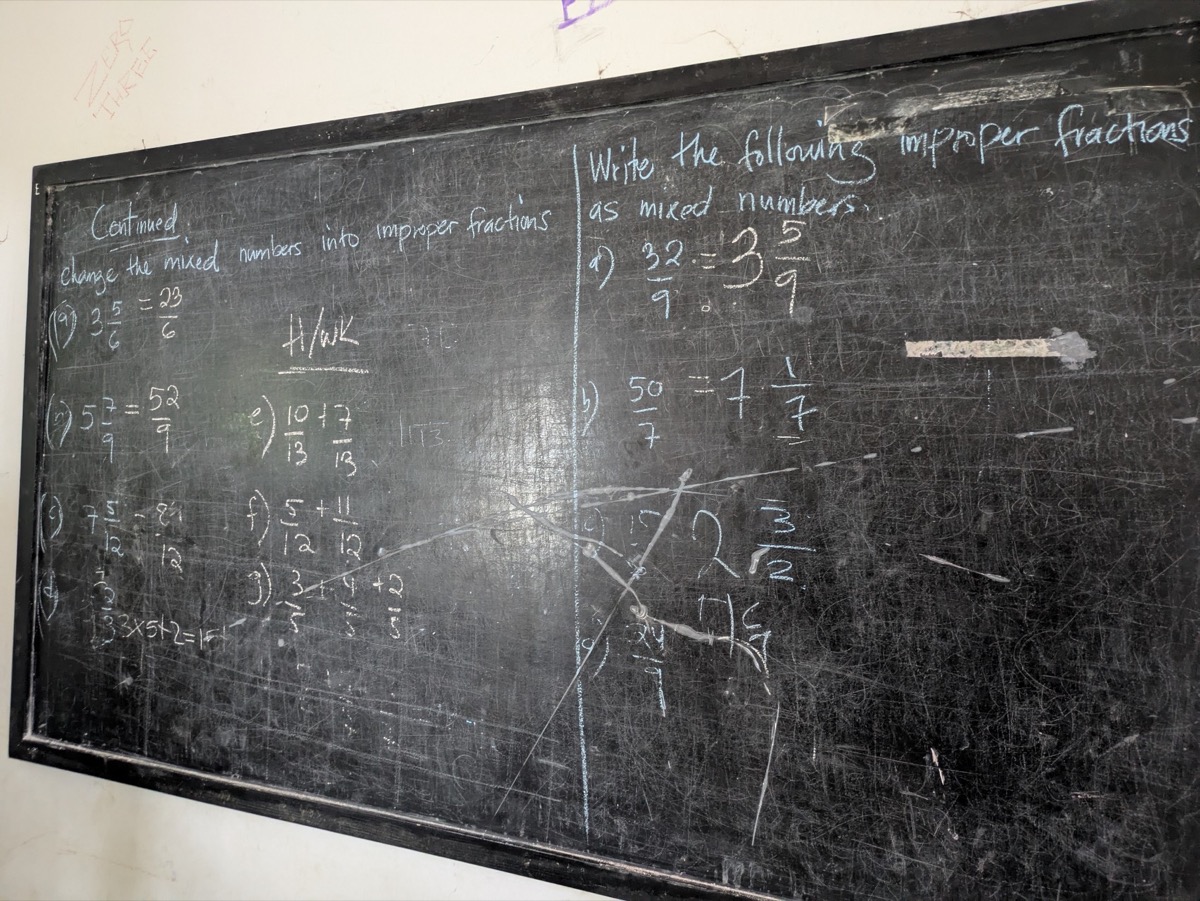 ZERO
THREE
E
Continued
change the mixed numbers into improper fractions
(a) 3 5/6 = 23/6
H/WK
(b) 5 7/9 = 52/9
e) 10/13 + 7/13
(c) 7 5/12 = 89/12
f) 5/12 + 11/12
(d)
3x5+2=
g) 3/5 + 4/5 + 2/5
Write the following improper fractions
as mixed numbers.
a) 32/9 = 3 5/9
b) 50/7 = 7 1/7
c) 15 2 3/2